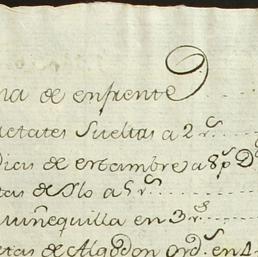 ma de enfrente
petates Sueltas a 2 r.s
dias de estambre a 8 p D
tas de Ylo a 5 r.s
muñequilla en 3 r.s
etas de Algodon Ord.s en 4